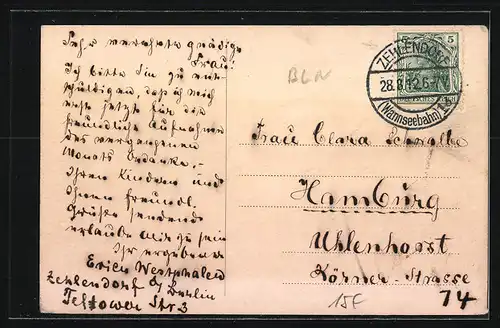 Sehr verehrte gnädige
Frau!
Ich bitte Sie zu ent-
schuldigen, daß ich mich
erst jetzt für die
freundliche Aufnahme
des vergangenen
Monats bedanke. -
Ihren Kindern und
Ihnen freundl.
Grüße sendend
erlaube mir zu sein
Ihr ergebener
Erich Westphalen
Zehlendorf b/ Berlin
Teltower Str 3
BLN
5
ZEHLENDORF
28.8.12.6-7V
(Wannseebahn)1
Frau Clara
Hamburg
Uhlenhorst
Körner-Strasse
14
15E